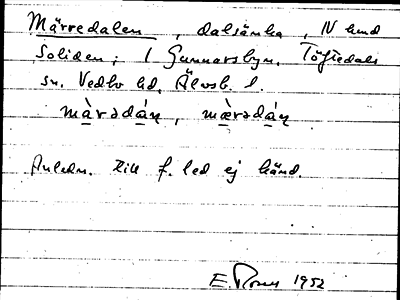 Märredalen, dalsänka, N hmd
Soliden; i Gunnarsbyn, Töftedals
sn. Vedbo hd, Älvsb. l.
màrədáṇ, mæ̀rədáṇ
Anledn. till f. led ej känd.
1952